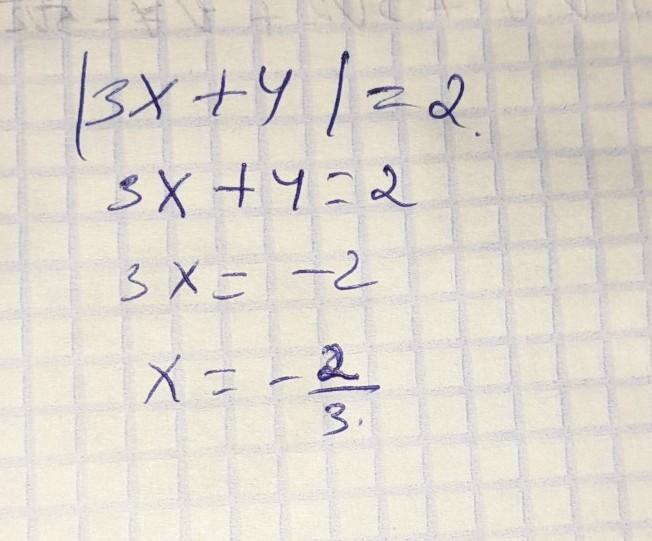 |3x+4|=2.
3x+4=2
3x= -2
x= -2/3.